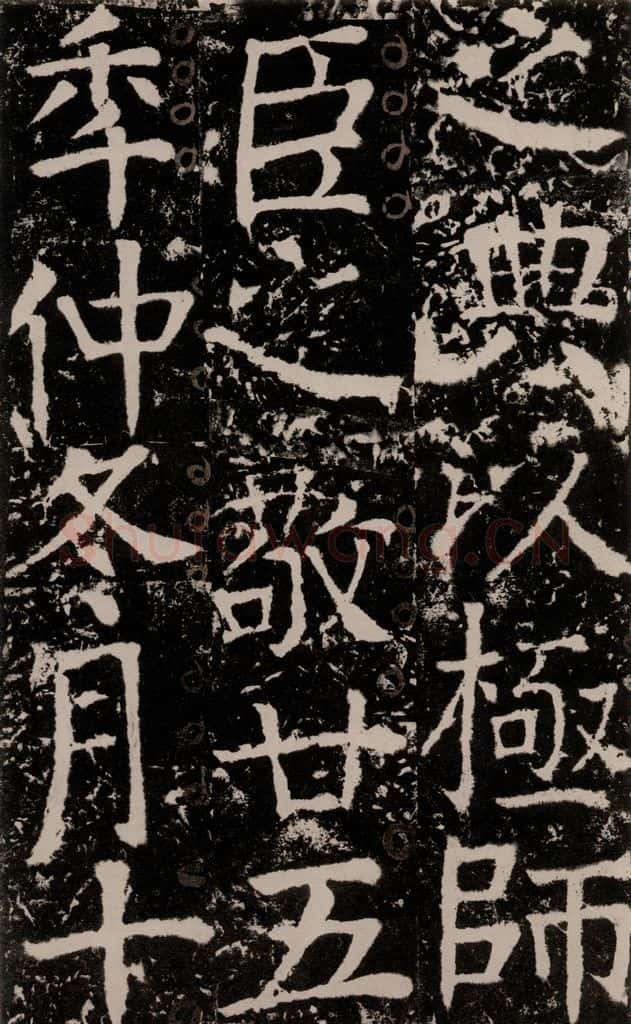 之典以極師
臣之敬廿五
年仲冬月十
Shufawang.CN